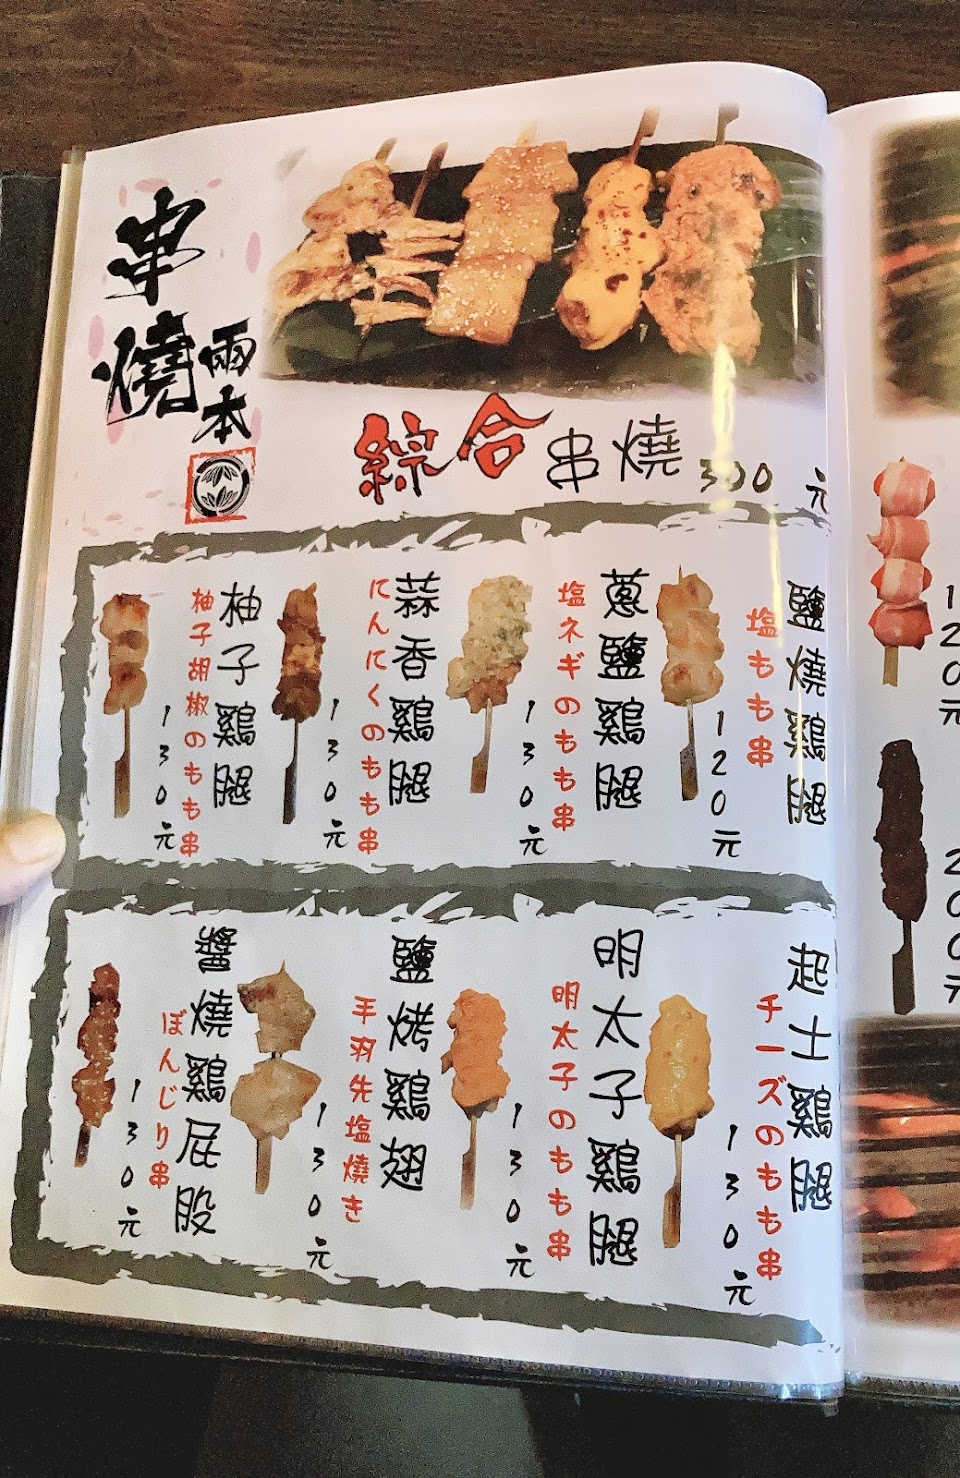 串燒
兩本
綜合串燒 300元
鹽燒雞腿
塩もも串
120元
蔥鹽雞腿
塩ネギのもも串
130元
蒜香雞腿
にんにくのもも串
130元
柚子雞腿
柚子胡椒のもも串
130元
起士雞腿
チーズのもも串
130元
明太子雞腿
明太子のもも串
130元
鹽烤雞翅
手羽先塩焼き
130元
醬燒雞屁股
ぼんじり串
130元
120元
200元